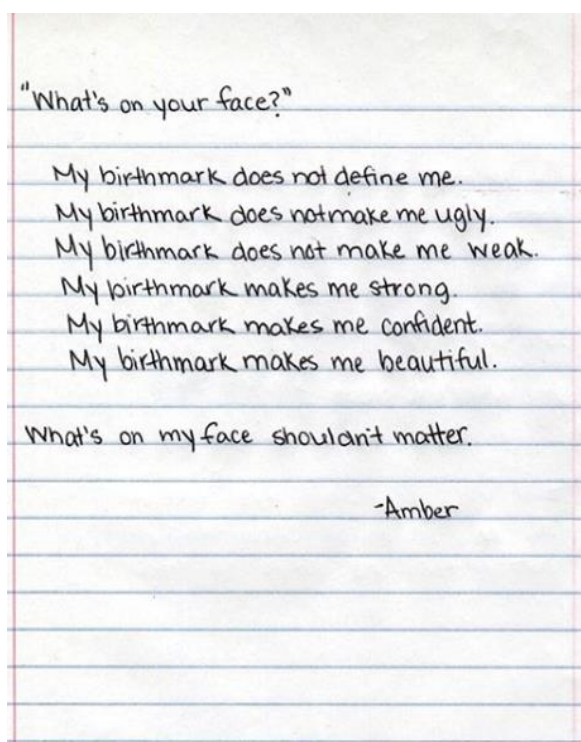 "What's on your face?"
My birthmark does not define me.
My birthmark does not make me ugly.
My birthmark does not make me weak.
My birthmark makes me strong.
My birthmark makes me confident.
My birthmark makes me beautiful.
What's on my face shouldn't matter.
-Amber